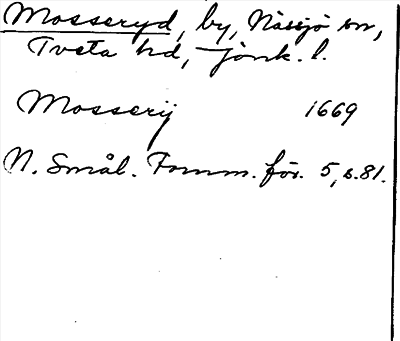 Mosseryd, by, Nässjö sn,
Tveta hd, Jönk. l.
Mosserÿ 1669
N. Smål. Fornm. för. 5, s. 81.